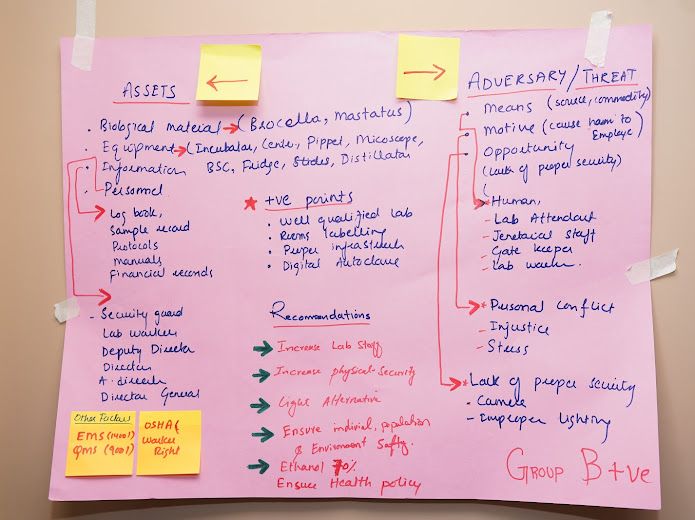 ASSETS
. Biological material → (Brocella, Mastatus)
. Equipment → (Incubator, Center, Pippet, Micoscope,
BSC, Fridge, Slides, Distillator
. Information
. Personnel
Log book,
Sample record
Protocols
manuals
Financial records
- Security guard
Lab worker
Deputy Director
Director
A. director
Director General
Other Factors
EMS (14001)
QMS (9001)
OSHA (
Worker
Right
←
→
* +ve points
. Well qualified Lab
. Rooms labelling
. Proper infrastructure
. Digital Autoclave
Recomandations
→ Increase Lab Staff
→ Increase physical Security
→ Light Alternative
→ Ensure individual, population
& Enviroment Safty.
→ Ethanol 70%
Ensure Health policy
ADVERSARY / THREAT
. Means (source, commodity)
. Motive (cause harm to
Employe)
. Opportunity
(Lack of proper security)
(
* Human,
- Lab Attendant
- Jenetorial Staff
- Gate keeper
- Lab worker.
* Personal Conflict
- Injustice
- Stress
* Lack of proper security
- Camera
- Emproper Lighting
GROUP B+ve